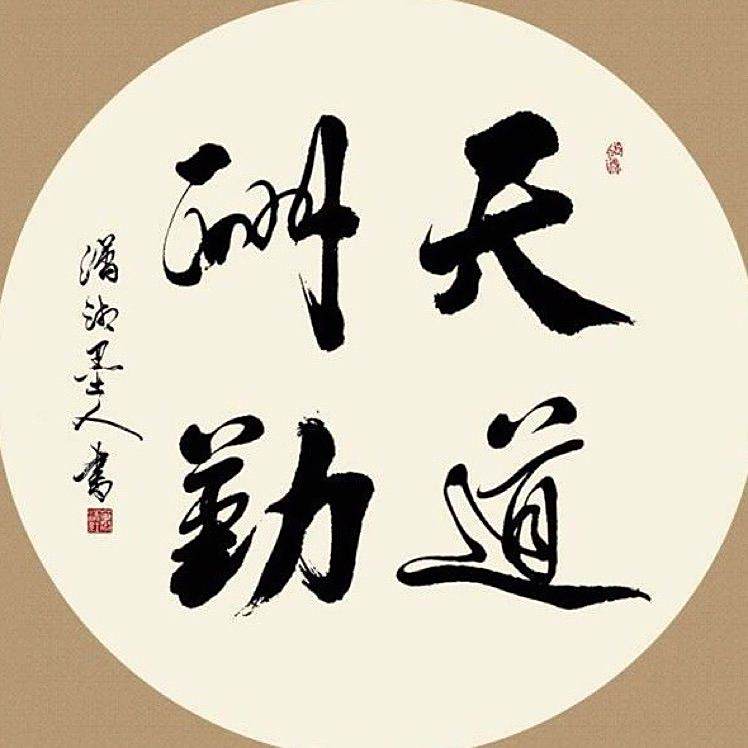 天道
酬勤
潇湘墨人书